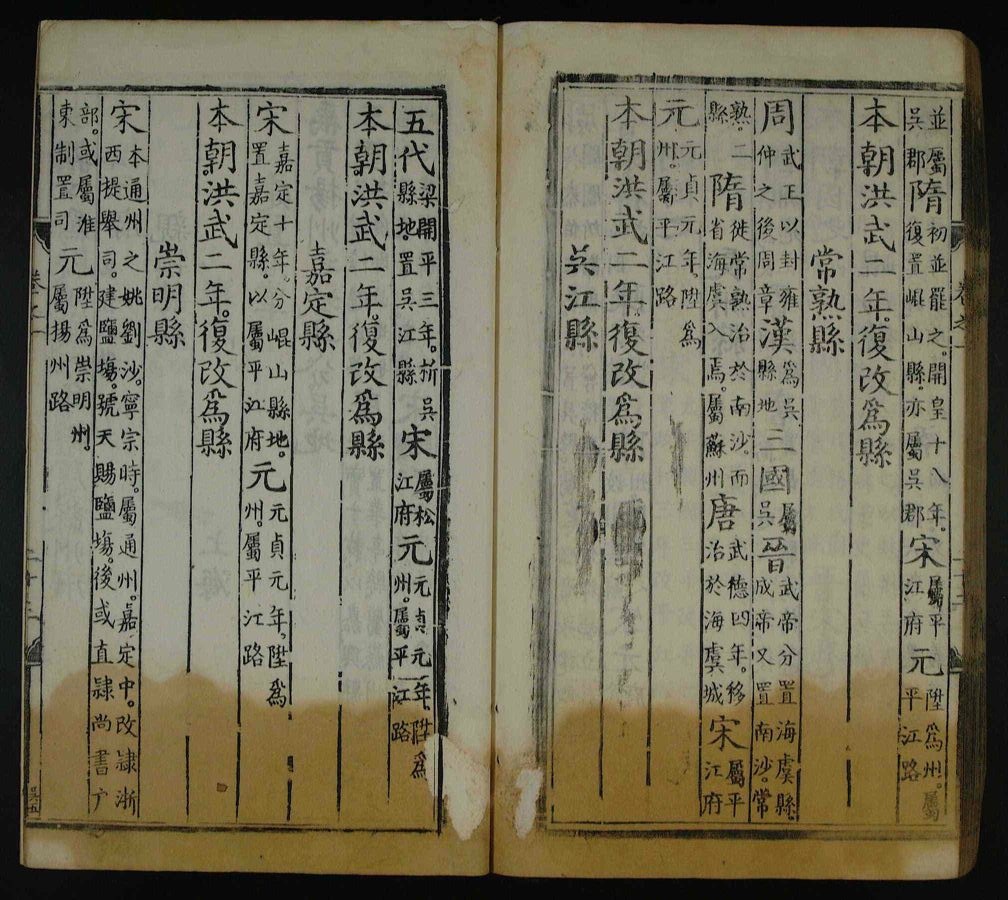 並屬吳郡隋初並罷之。開皇十八年。復置崐山縣。亦屬吳郡宋屬平江府元陞爲州。屬平江路
本朝洪武二年。復改爲縣
常熟縣
周武王以封雍仲之後周章漢爲吳縣地三國屬吳晉武帝分置海虞縣。成帝又置南沙。常
熟。二縣隋徙常熟治於南沙。而省海虞入焉。屬蘇州唐武德四年。移治於海虞城宋屬平江府
元元貞元年。陞爲州。屬平江路
本朝洪武二年。復改爲縣
吳江縣
五代梁開平三年。析吳縣地。置吳江縣宋屬松江府元元貞元年。陞爲州。屬平江路
本朝洪武二年。復改爲縣
嘉定縣
宋嘉定十年。分崐山縣地。置嘉定縣。以屬平江府元元貞元年。陞爲州。屬平江路
本朝洪武二年。復改爲縣
崇明縣
宋本通州之姚劉沙。寧宗時。屬通州。嘉定中。改隷浙西提舉司。建鹽塲。號天賜鹽塲。後或直隷尚書户
部。或屬淮東制置司元陞爲崇明州。屬揚州路